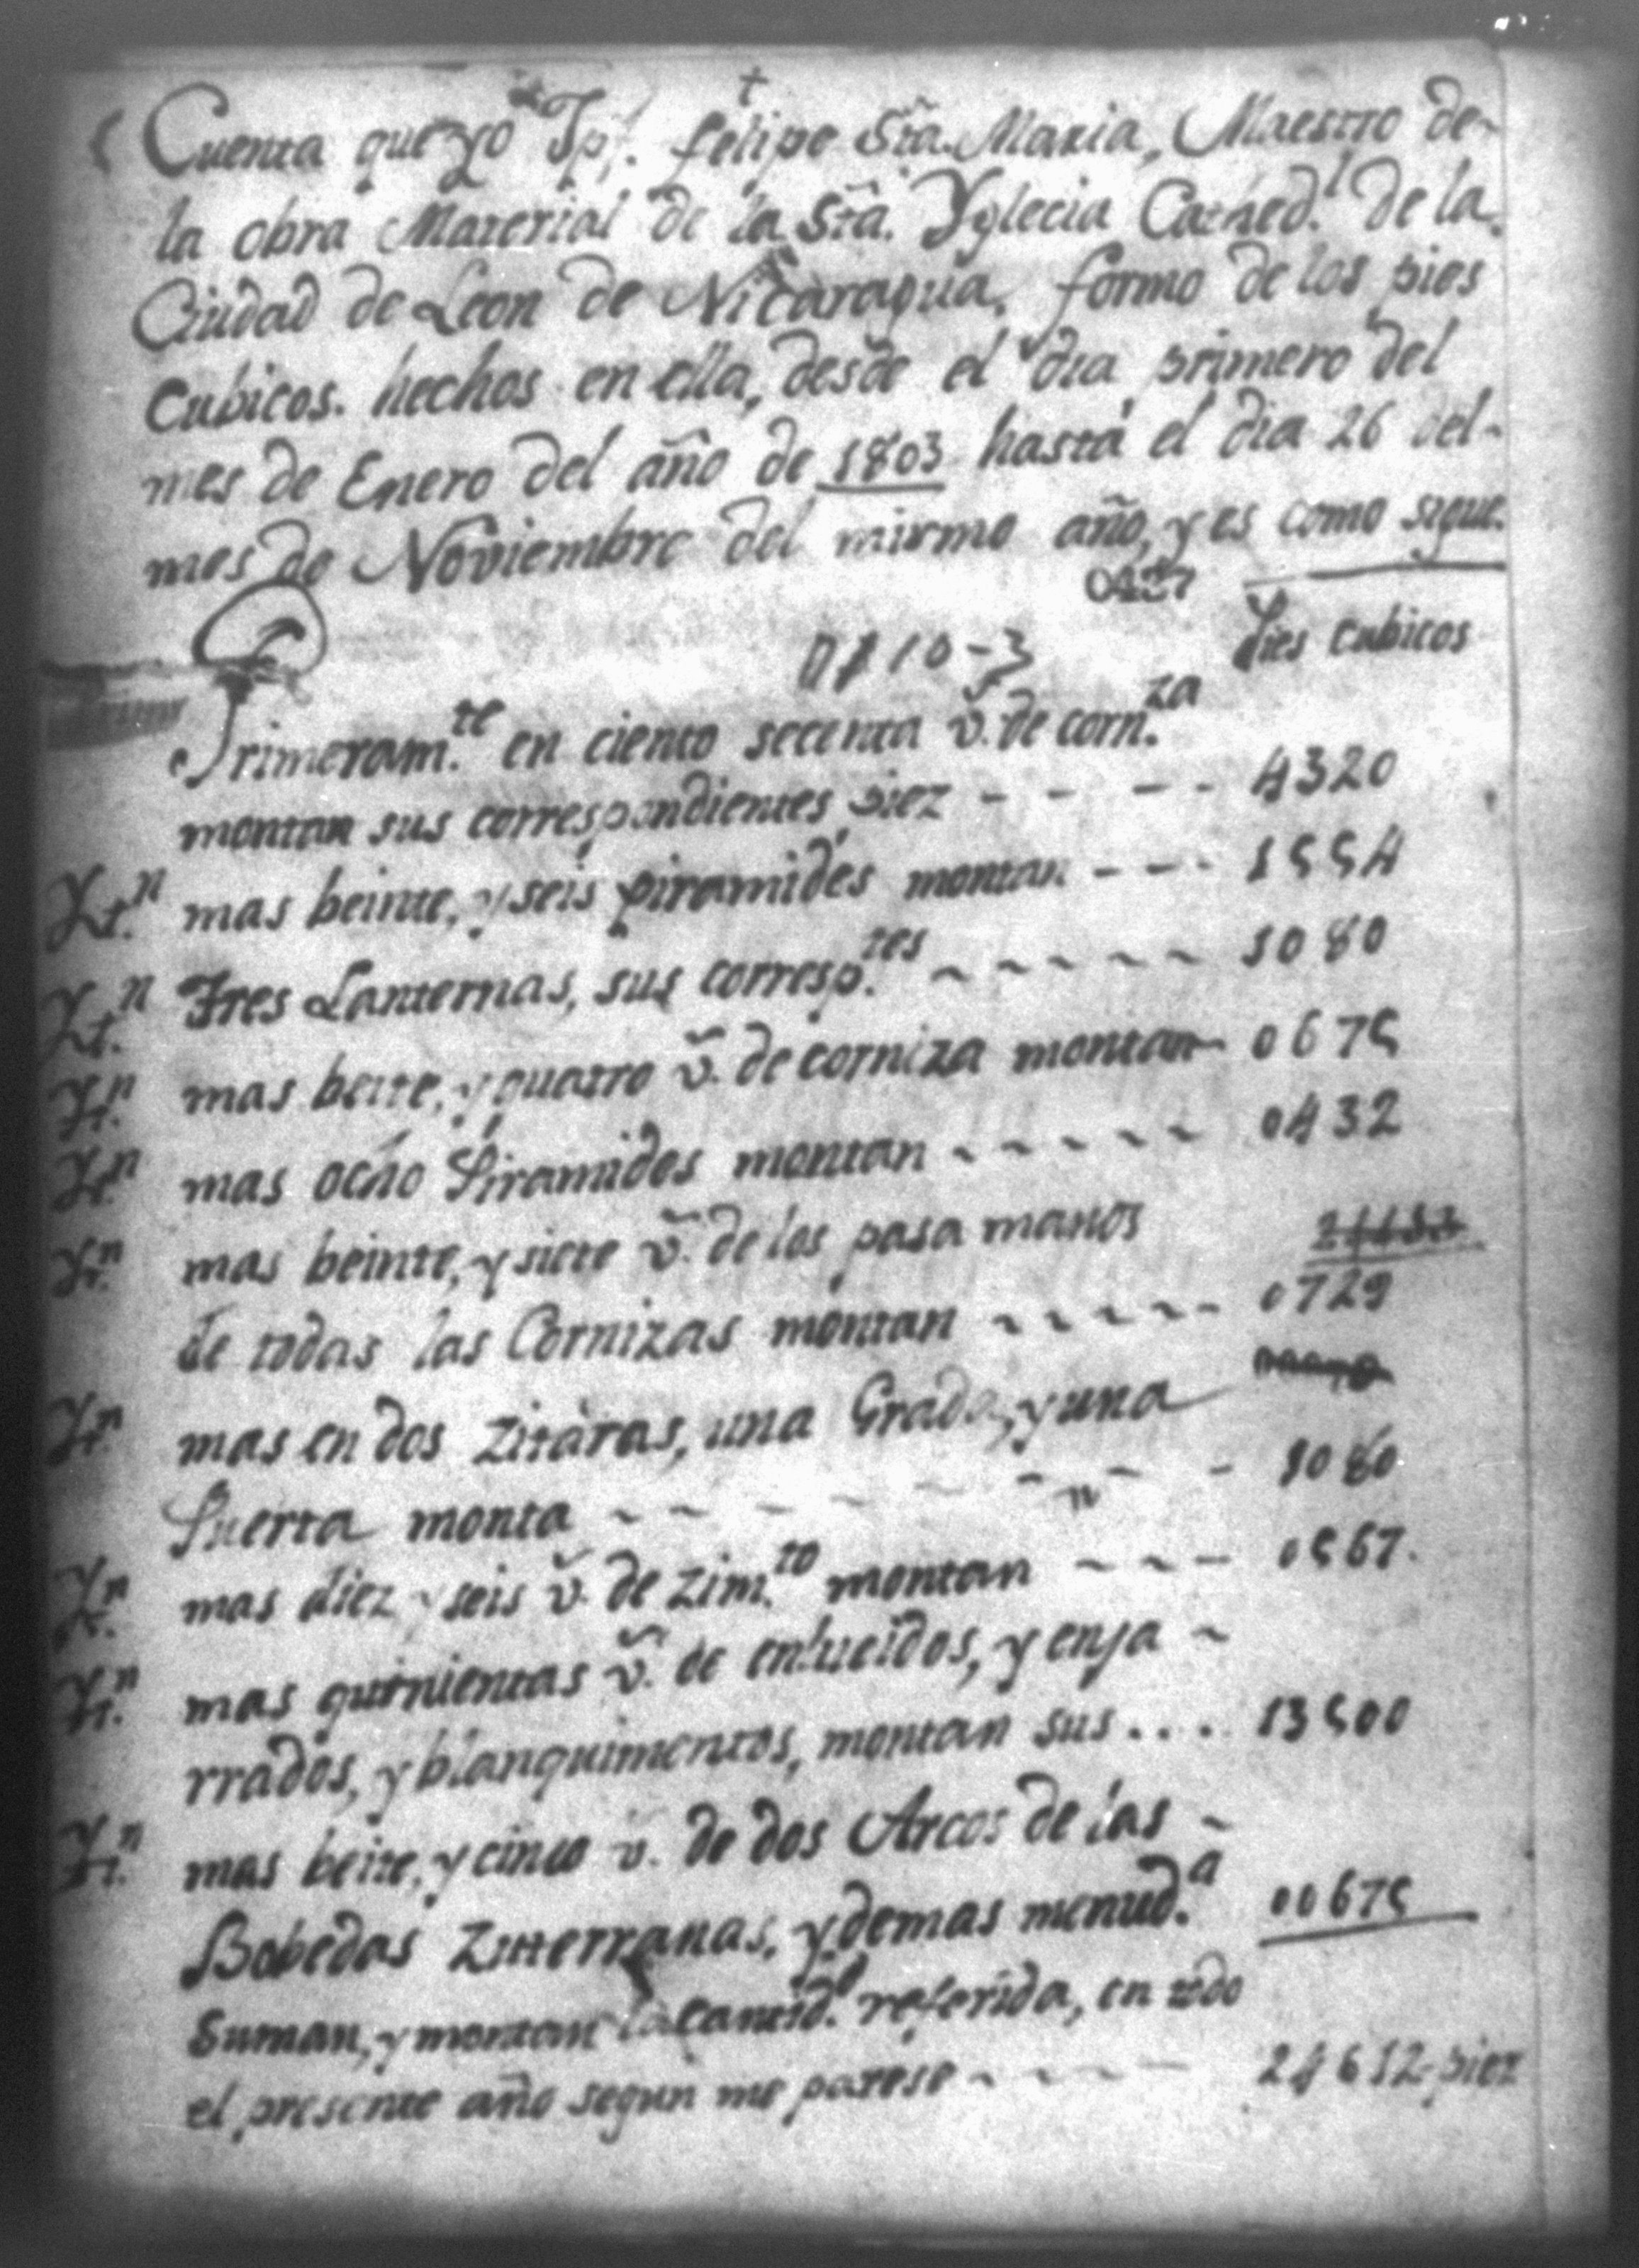 †
Cuenta que yo Jph. felipe Sta. Maria, Maestro de
la obra Material de la Sta. Yglecia Cathed.l de la
Ciudad de Leon de Nicaragua, formo de los pies
Cubicos. hechos en ella, desde el dia primero del
mes de Enero del año de 1803 hasta el dia 26 del
mes de Noviembre del mismo año, y es como sigue.
Pies cubicos
Primeram.te en ciento secenta v. de corn.za
montan sus correspondientes piez - - - - 4320
Yt.n mas beinte, y seis piramides montan - - - 1554
Yt.n Tres Lanternas, sus corresp.tes - - - - - - 1080
Yt.n mas beite, y quatro v. de corniza montan - 0675
Yt.n mas ocho Piramides montan - - - - - - 0432
Yt.n mas beinte, y siete v. de los pasa manos
de todas las Cornizas montan - - - - - - 0729
Yt.n mas en dos Zitaras, una Grada, y una
Puerta monta - - - - - - - - 1080
Yt.n mas diez y seis v. de zim.to montan - - - - 0567.
Yt.n mas quinientas v. de enlucidos, y enja ~
rrados, y blanquimentos, montan sus . . . . 13500
Yt.n mas beite, y cinco v. de dos Arcos de las ~
Bobedas Zutterranas, y demas menud.a 00675
Suman, y montan la cantid.d referida, en todo
el presente año segun me parese - - - - - 24612 piez